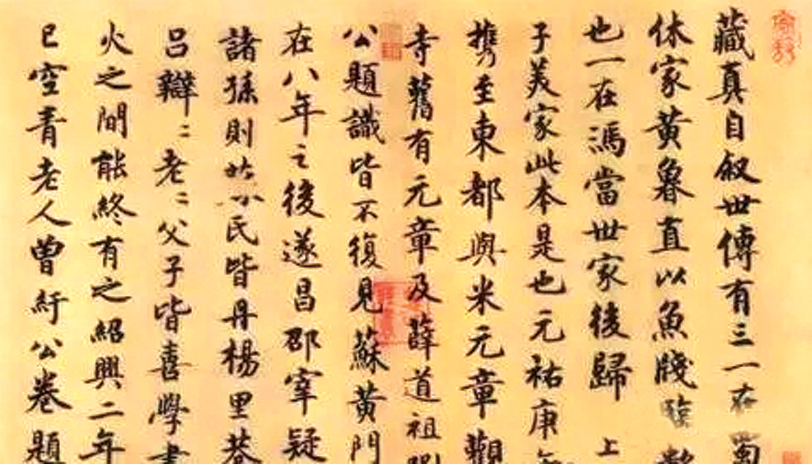 藏真自叙世傳有三一在蜀
休家黄魯直以魚牋臨數
也一在馮當世家後歸上
子美家此本是也元祐庚午
携至東都與米元章觀
寺舊有元章及薛道祖劉
公題識皆不復見蘇黄門
在八年之後遂昌邵宰疑
諸孫則氏皆丹楊里巷
吕辯〻老〻父子皆喜學書
火之間能終有之紹興二年
巳空青老人曾紆公卷題